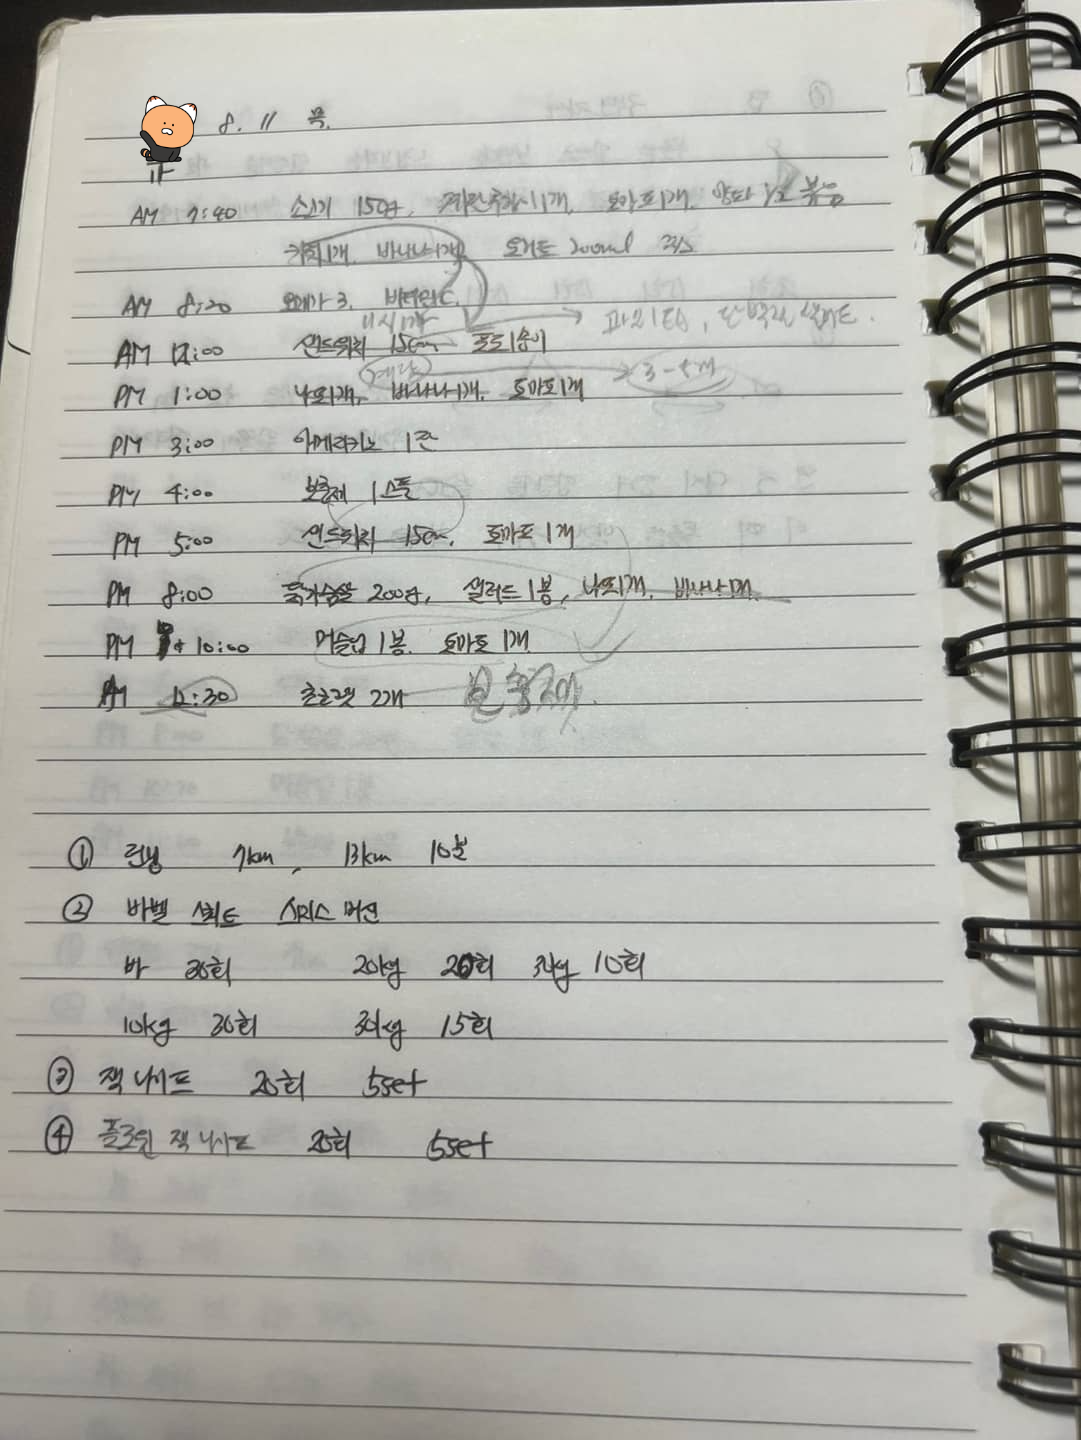 8. 11 목.
AM 7:40 소고기 150g, 계란후라이 1개, 토마토 1개, 양파 1/2 볶음
키위 1개, 바나나 1개, 요거트 200ml 주스
AM 8:20 오메가 3, 비타민 C,
11시 → 파리X, 단백질 샐러드.
AM 12:00 샌드위치 15cm 포도 1송이
계란 → 3-5개
PM 1:00 1개, 바나나 1개, 토마토 1개
PM 3:00 아메리카노 1잔
PM 4:00 보충제 1스쿱
PM 5:00 샌드위치 15cm, 토마토 1개
PM 8:00 닭가슴살 200g, 샐러드 1봉, 1개, 바나나 1개.
PM 10:00 머슬업 1봉, 토마토 1개
AM 12:30 초콜렛 2개 보충제.
① 런닝 7km, 13km 10분
② 바벨 스쿼트 스미스 머신
바 30회 20kg 20회 34kg 10회
10kg 30회 30kg 15회
③ 잭 나이프 20회 5set
④ 잭 나이프 20회 5set